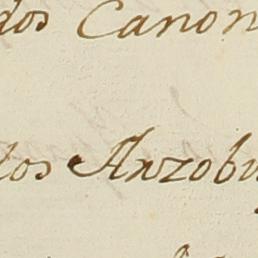 dos Canon
los Anzobi